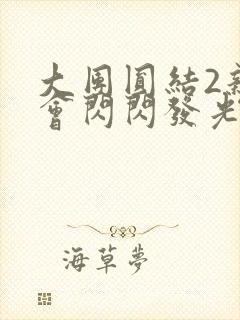 大團圓結2新
會閃閃發光
海草夢